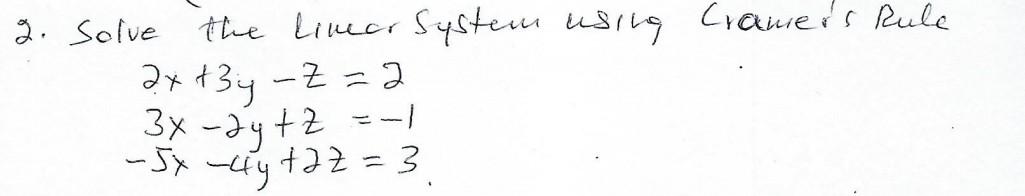 2. Solve the Linear System using Cramer's Rule
2x +3y -z = 2
3x -2y +z = -1
-5x -4y +2z = 3.